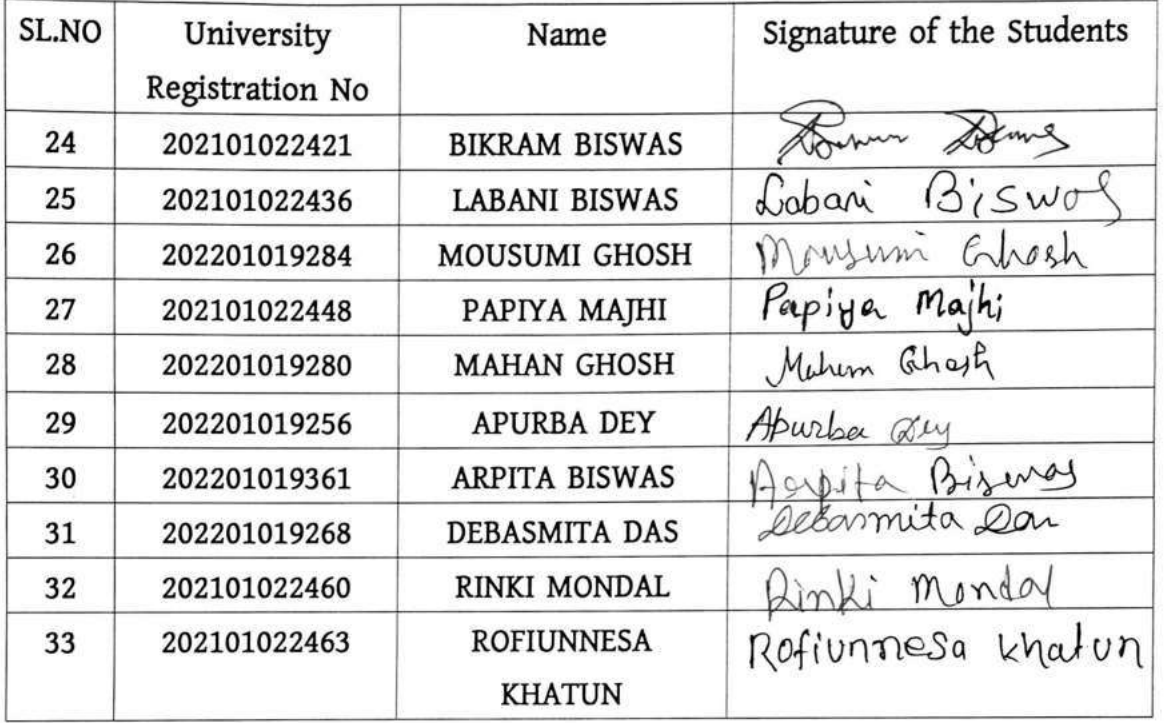 SL.NO University Registration No Name Signature of the Students
24 202101022421 BIKRAM BISWAS
25 202101022436 LABANI BISWAS Labani Biswas
26 202201019284 MOUSUMI GHOSH Mousumi Ghosh
27 202101022448 PAPIYA MAJHI Papiya Majhi
28 202201019280 MAHAN GHOSH Mahan Ghosh
29 202201019256 APURBA DEY Apurba Dey
30 202201019361 ARPITA BISWAS Arpita Biswas
31 202201019268 DEBASMITA DAS Debasmita Das
32 202101022460 RINKI MONDAL Rinki Mondal
33 202101022463 ROFIUNNESA KHATUN Rofiunnesa khatun